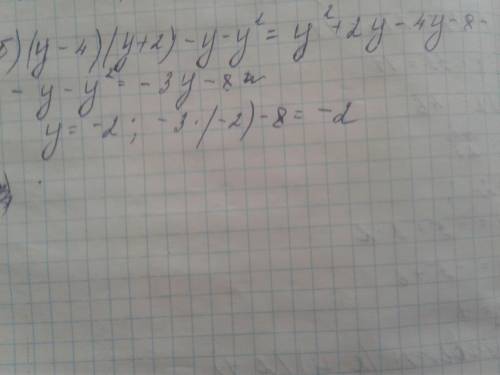 б) (y-4)(y+2)-y-y²= y²+2y-4y-8-
-y-y²= -3y-8
y= -2; -3·(-2)-8= -2